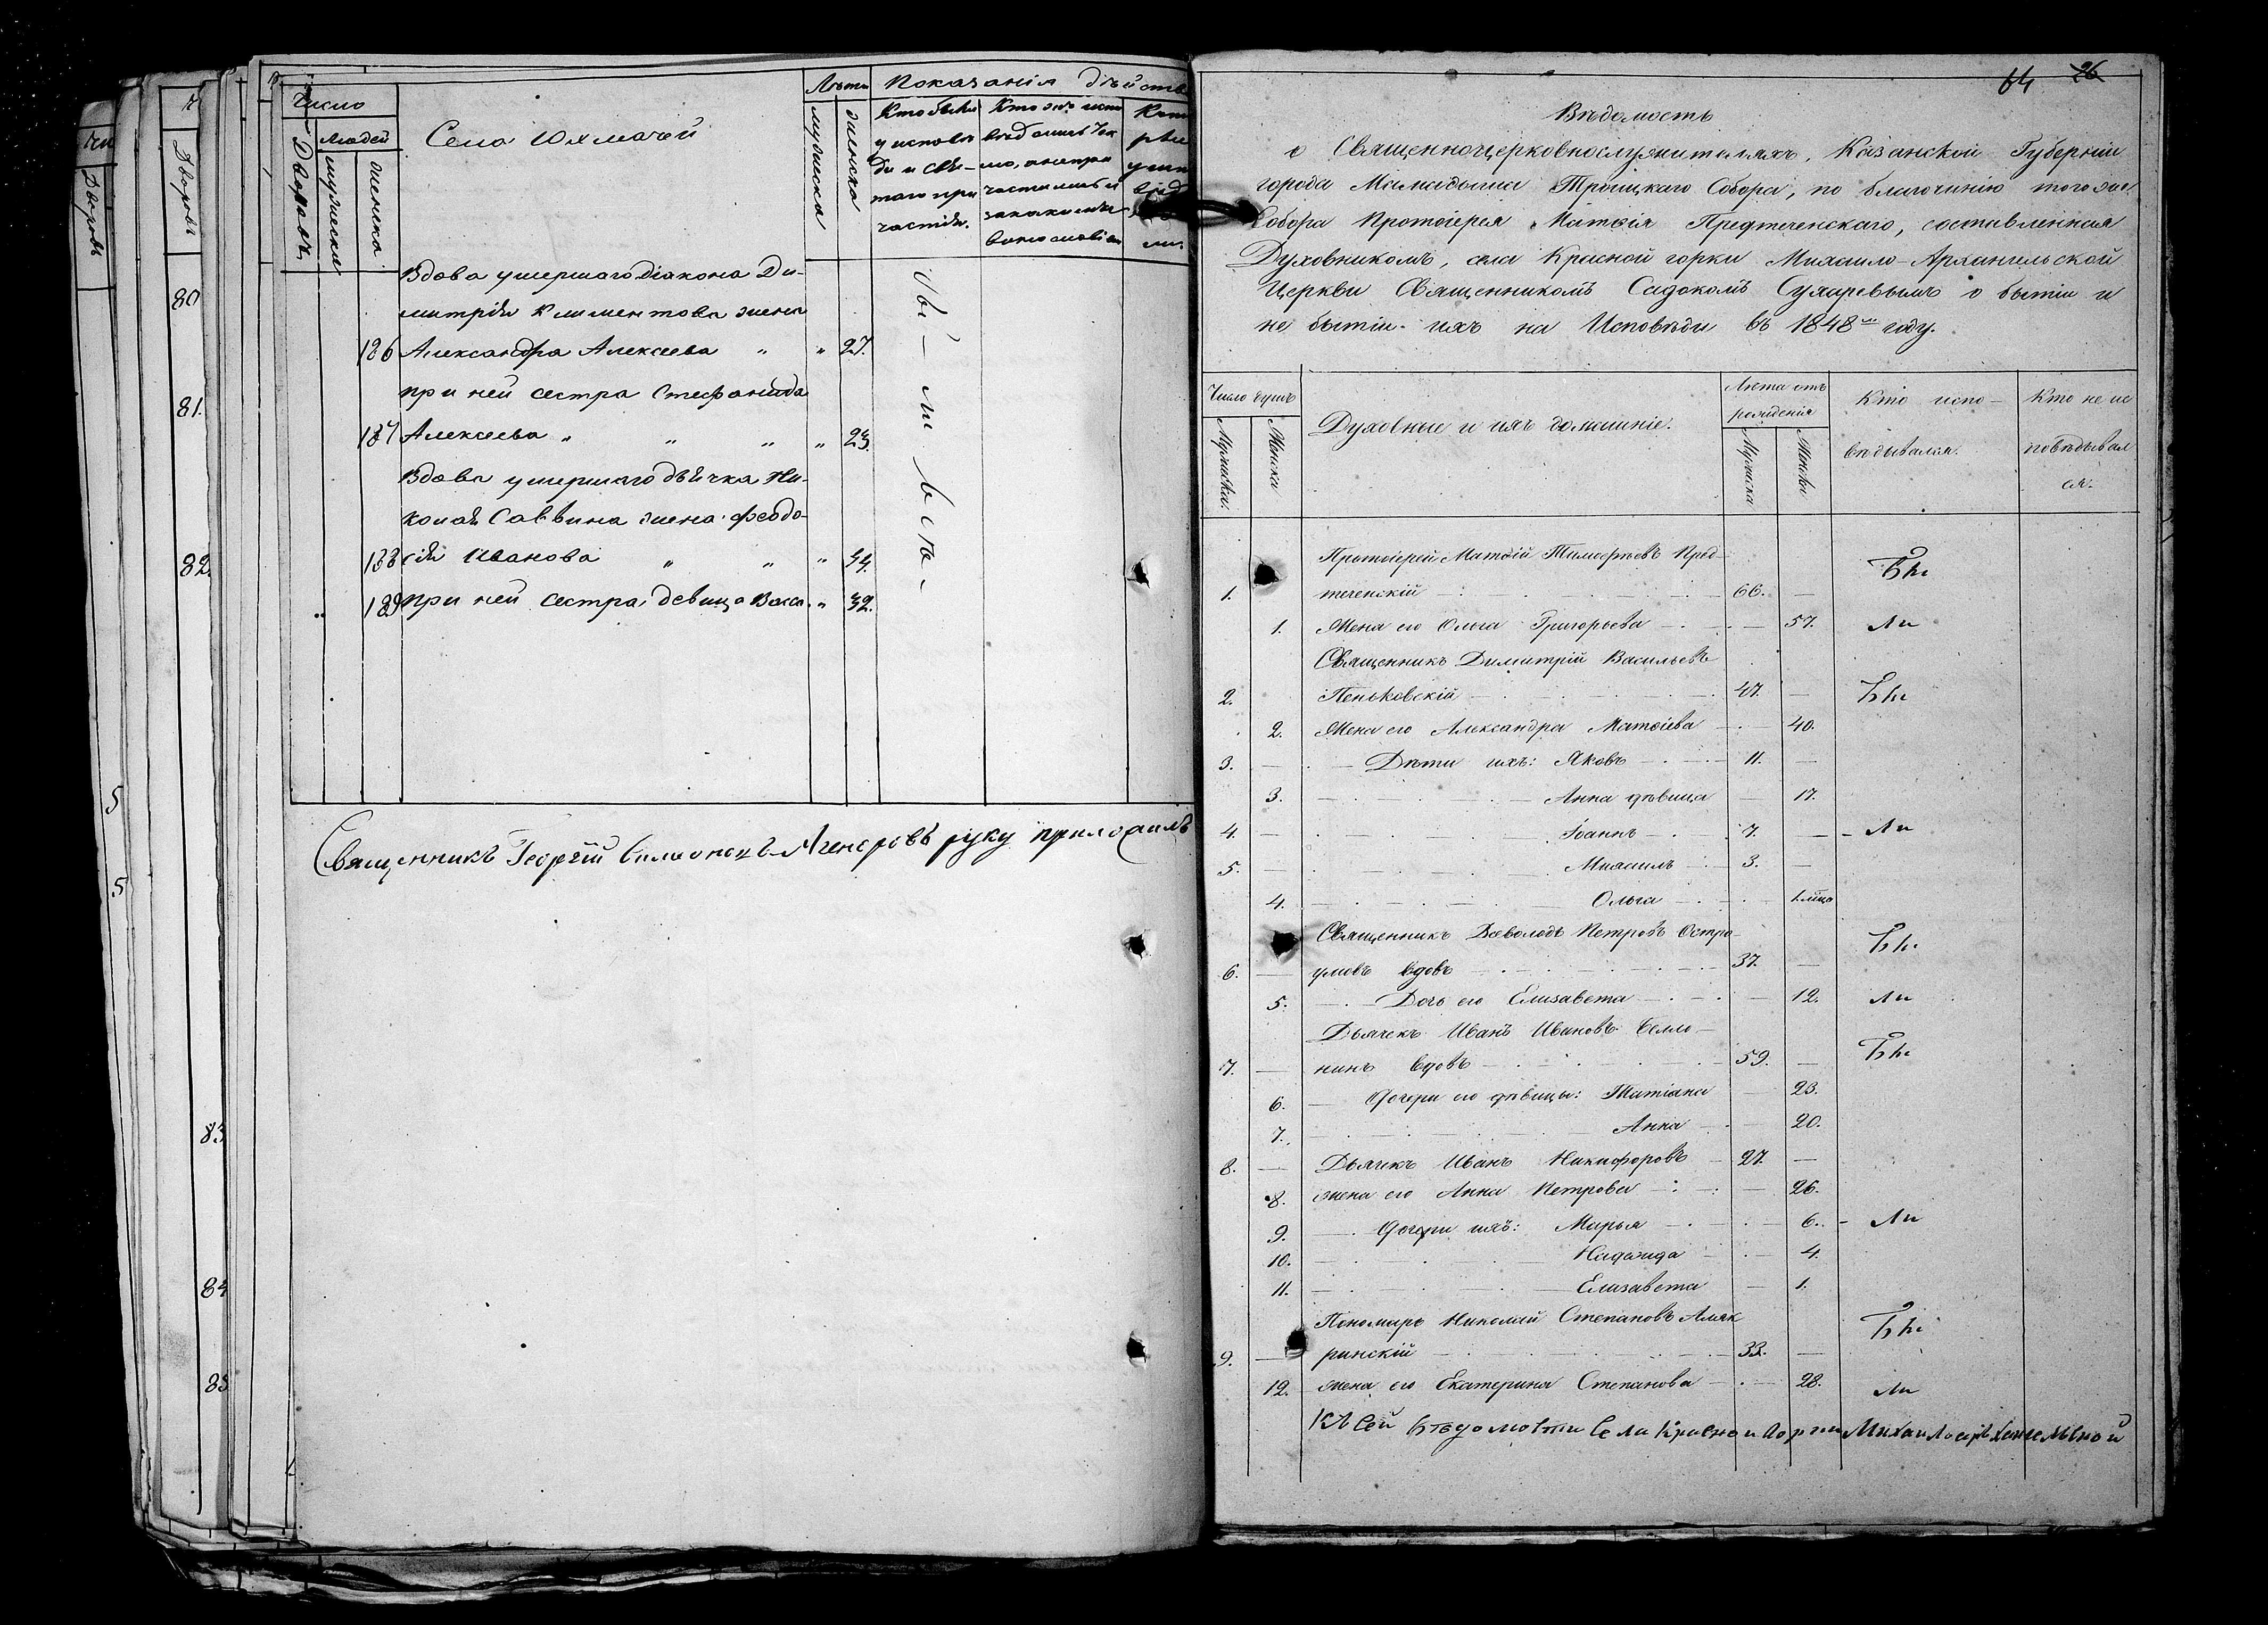 Число
Людей
Дворовъ
мужеска
женска
Села Юхмачей
Лѣта
мужеска
женска
Показанія дѣйств
Кто были
у испове
ди и свя-
таго при
частія.
Вдова умершаго діакона Ди-
митрія Климентова жена
186 Александра Алексеева " " 27.
при ней сестра Стефанида
187 Алексеева " " " " 23.
Вдова умершаго дьячка Ни-
колая Саввина жена Феодо-
188 сія Иванова " " " 44.
189 при ней сестра девица Васса " 32.
бы-ли всѣ
Священникъ Георгій руку приложилъ
80
81.
82.
5
5
83
84
85
64 26
Вѣдомость
о Священноцерковнослужителяхъ, Казанской Губерніи
города Мамадыша Троицкаго Собора, по благочинію того же
Собора Протоіерея Матѳія Предтеченскаго, составленная
Духовникомъ, села Красной горки Михаило-Архангельской
Церкви Священникомъ Садокомъ Сухаревымъ о бытіи и
не бытіи ихъ на Исповѣди въ 1848мъ году.
Число душъ
Мужска.
Женска
Духовные и ихъ домашніе.
Лѣта отъ
рожденія
Мужска
Женска
Кто испо-
вѣдывался.
Кто не ис
повѣдывал
ся.
Протоіерей Матѳій Тимоѳѣевъ Пред-
1. теченскій 66. — Бы
1. Жена его Ольга Григорьева — 57. ли
Священникъ Димитрій Васильевъ
2. Пеньковскій 47. — Бы
2. Жена его Александра Матѳіева — 40.
3. — Дѣти ихъ: Яковъ 11. —
3. Анна дѣвица — 17.
4. — Іоаннъ 7. — ли
5. — Михаилъ 3. —
4. Ольга
Священникъ Всеволодъ Петровъ Остро-
6. — умовъ вдовъ 37. — Бы
5. Дочь его Елизавета — 12. ли
Дьячекъ Иванъ Ивановъ
7. — нинъ вдовъ 59. — Бы
6. Дочери его дѣвицы: Татіана — 23.
7. Анна — 20.
8. — Дьячекъ Иванъ Никифоровъ 27. —
8. жена его Анна Петрова — 26.
9. Дочери ихъ: Марья — 6. - ли
10. Надежда — 4.
11. Елизавета — 1.
Пономарь Николай Степановъ Аляк
9. — ринскій 33. — Бы
12. жена его Екатерина Степанова — 28. ли
Къ сей вѣдомости Села Красной Горки Михаилоархангельской